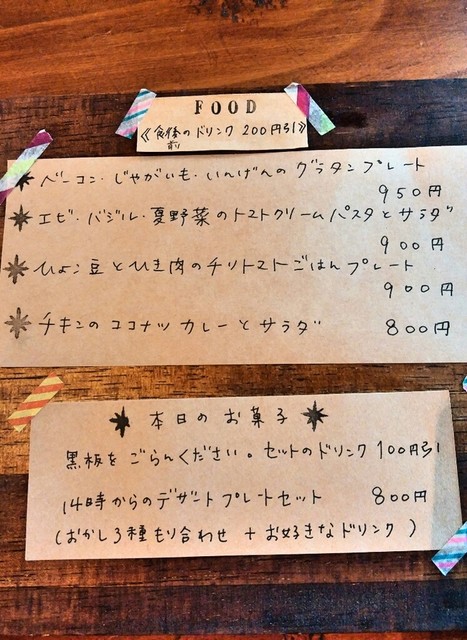 FOOD
《食後のドリンク 200円引》
前
ベーコン・じゃがいも・いんげんのグラタンプレート
950円
エビ・バジル・夏野菜のトマトクリームパスタとサラダ
900円
ひよこ豆とひき肉のチリトマトごはんプレート
900円
チキンのココナツカレーとサラダ 800円
本日のお菓子
黒板をごらんください。セットのドリンク100円引
14時からのデザートプレートセット 800円
(おかし3種もり合わせ + お好きなドリンク)